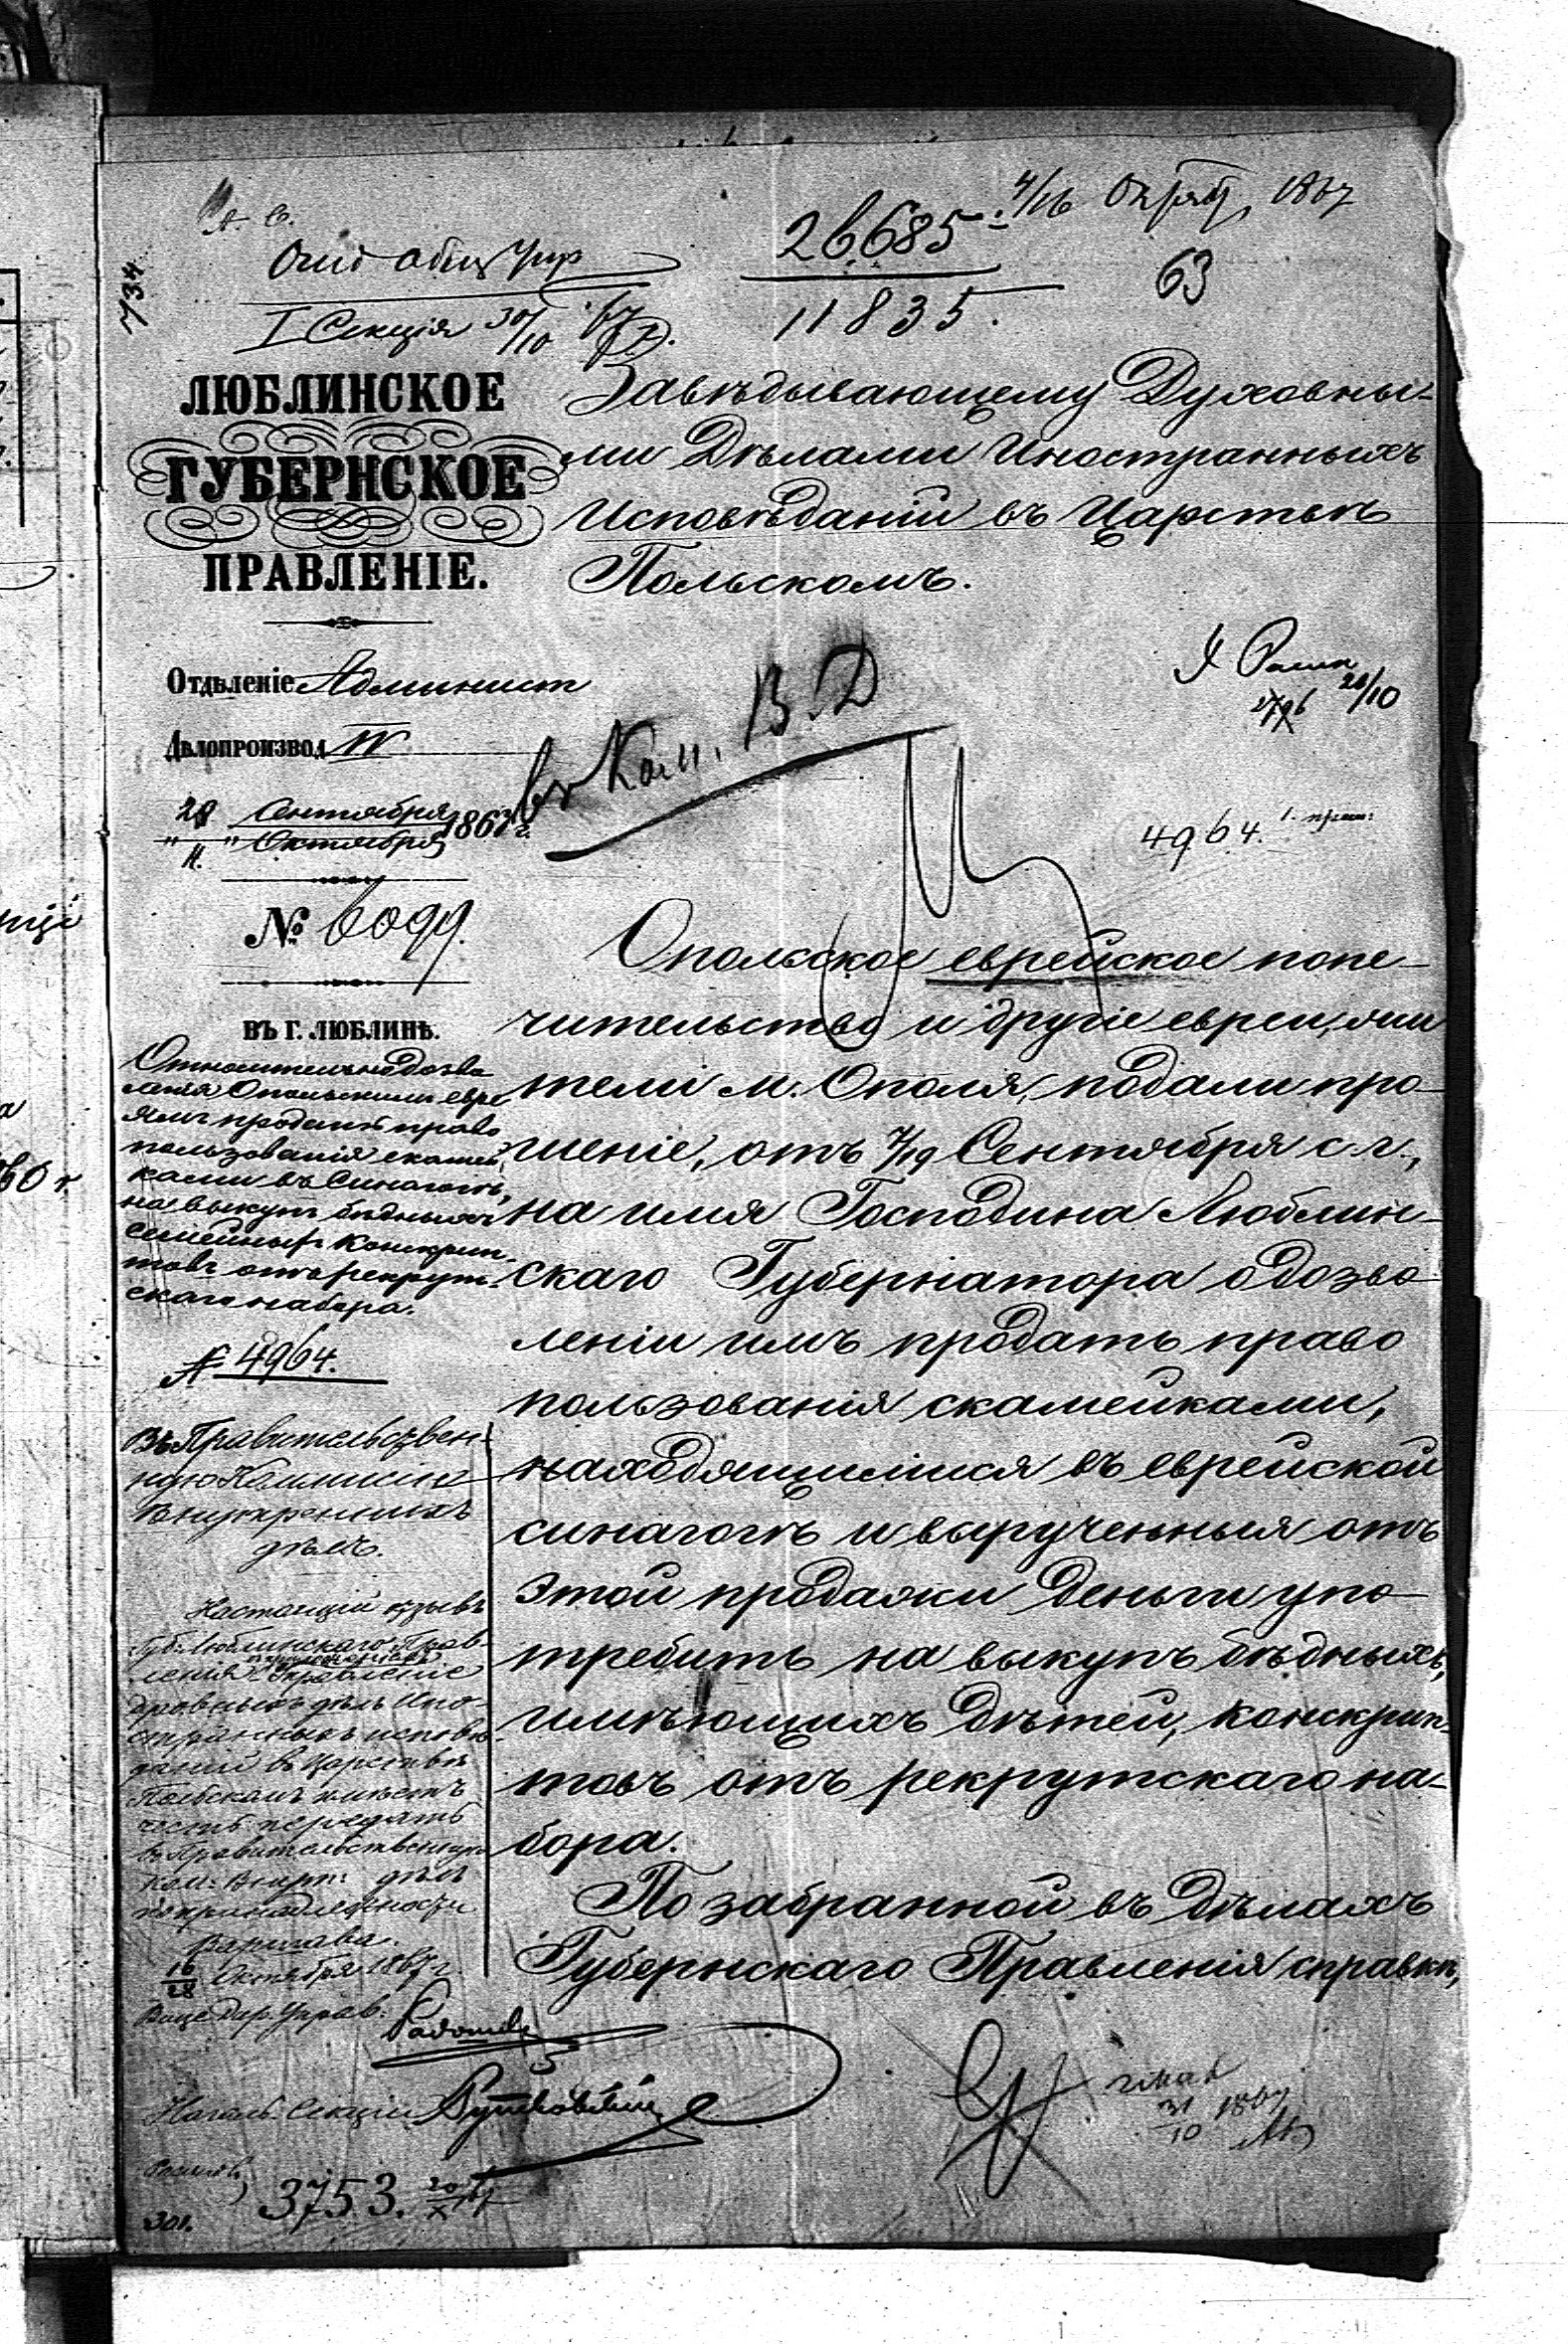 734
26685
11835.
4/16 Октяб, 1867
63
I Секція 30/10 67
ЛЮБЛИНСКОЕ
ГУБЕРНСКОЕ
ПРАВЛЕНІЕ.
Отдѣленіе Админист
Дѣлопроизвод IV
28 Сентября
" 11. " Октября 1867 г.
№ 6099.
ВЪ Г. ЛЮБЛИНѢ.
Относительно дозво
ленія Опольскимъ евре
ямъ продать право
пользованія скамей
ками въ Синагогѣ,
на выкупъ бѣдныхъ
семейныхъ конскрип
товъ отъ рекрут
скаго набора.
№ 4964.
Завѣдывающему Духовны-
ми Дѣлами Иностранныхъ
Исповѣданій въ Царствѣ
Польскомъ.
въ Ком. В. Д
20/10
4964.
Опольское еврейское попе-
чительство и другіе евреи, жи
тели м. Ополя, подали про-
шеніе, отъ 7/19 Сентября с.г.,
на имя Господина Люблин-
скаго Губернатора о дозво
леніи имъ продать право
пользованія скамейками,
находящимися въ еврейской
синагогѣ и вырученныя отъ
этой продажи деньги упо-
требить на выкупъ бѣдныхъ,
имѣющихъ дѣтей, конскрип-
товъ отъ рекрутскаго на-
бора.
По забранной въ дѣлахъ
Губернскаго Правленія справкѣ,
Въ Правительствен-
ную Коммисію
Внутреннихъ
дѣлъ.
Настоящій отзывъ
Губ. Люблинскаго Прав-
ленія Управленіе
Духовныхъ дѣлъ Ино-
странныхъ исповѣ-
даній въ Царствѣ
Польскомъ имѣетъ
честь передать
въ Правительственную
Ком: Внутр: дѣлъ
по принадлежности
Варшава.
16/28 Октября 1867 г.
Вице Дир. Управ:
Началь. Секціи
3753. 20/X 67
301.
31/10 1867